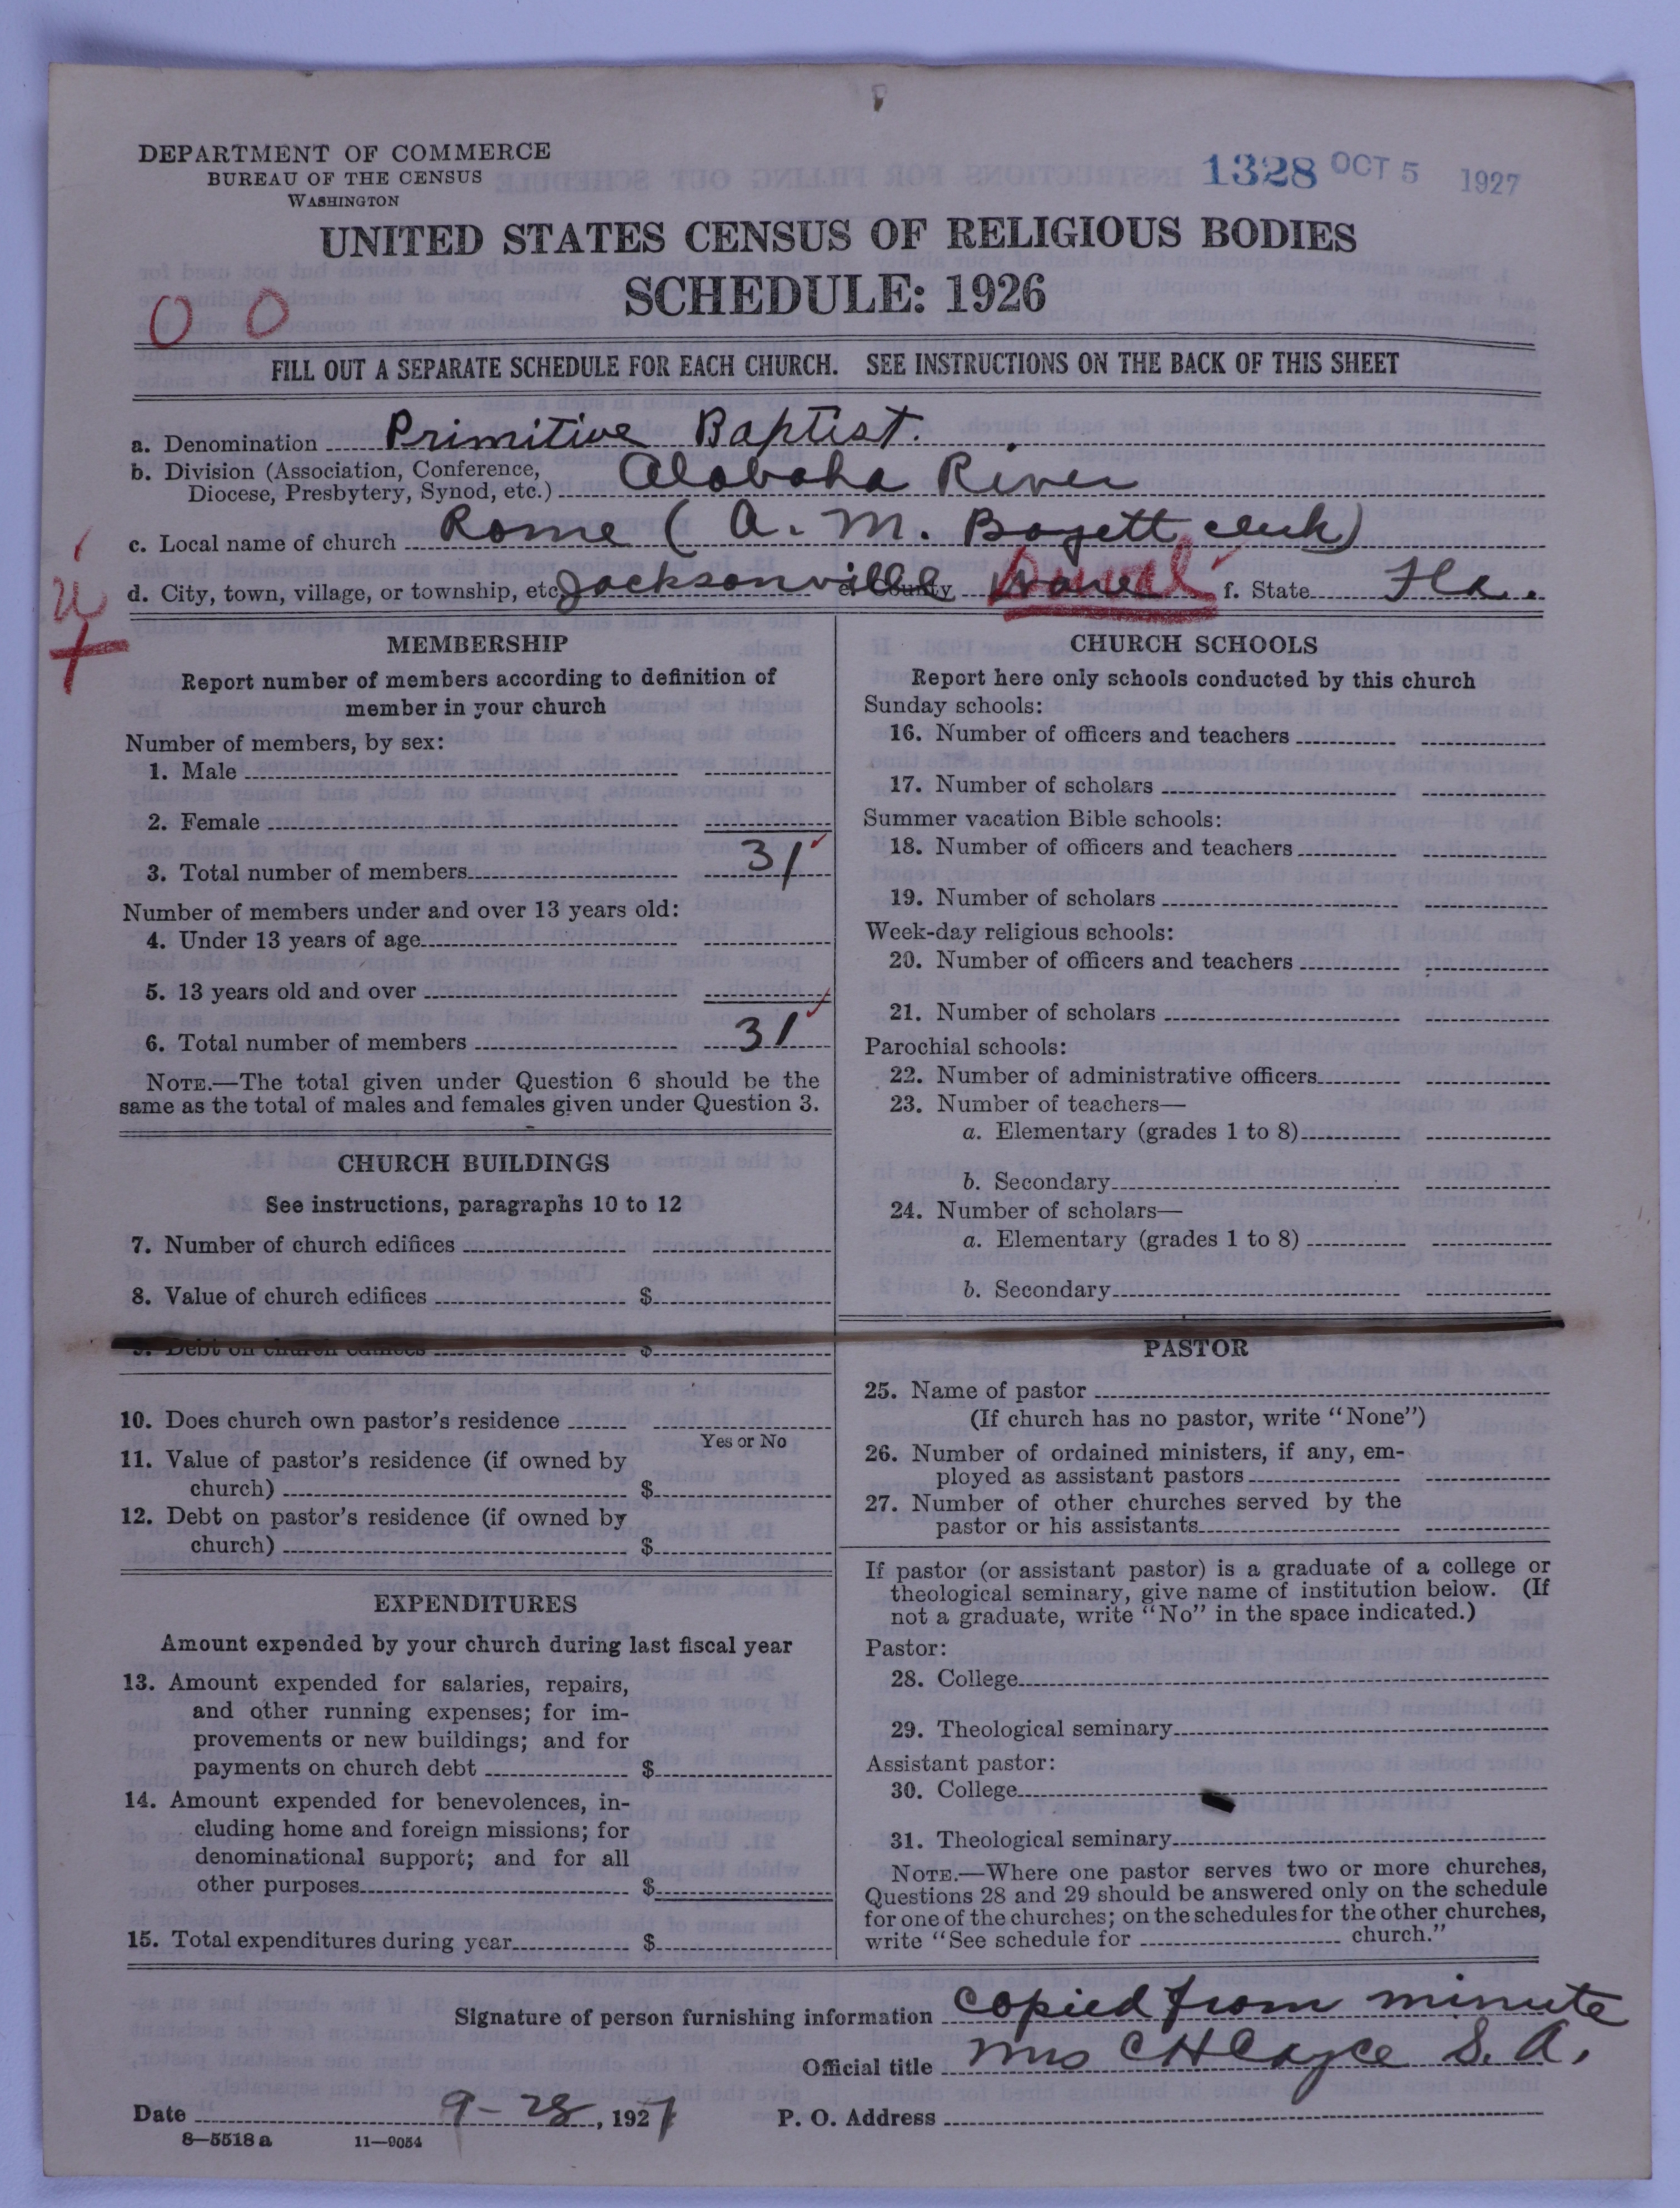 DEPARTMENT OF COMMERCE
BUREAU OF THE CENSUS
WASHINGTON
1328 OCT 5 1927
UNITED STATES CENSUS OF RELIGIOUS BODIES
SCHEDULE: 1926
0 0
FILL OUT A SEPARATE SCHEDULE FOR EACH CHURCH. SEE INSTRUCTIONS ON THE BACK OF THIS SHEET
a. Denomination Primitive Baptist.
b. Division (Association, Conference, Diocese, Presbytery, Synod, etc.) Alabaha River
c. Local name of church Rome (A. M. Bozett clerk)
d. City, town, village, or township, etc. Jacksonville e. County Duval f. State Fla.
MEMBERSHIP
Report number of members according to definition of
member in your church
Number of members, by sex:
1. Male
2. Female
3. Total number of members 31
Number of members under and over 13 years old:
4. Under 13 years of age
5. 13 years old and over
6. Total number of members 31
NOTE.—The total given under Question 6 should be the
same as the total of males and females given under Question 3.
CHURCH BUILDINGS
See instructions, paragraphs 10 to 12
7. Number of church edifices
8. Value of church edifices $
9. Debt on church edifices $
10. Does church own pastor's residence
Yes or No
11. Value of pastor's residence (if owned by
church) $
12. Debt on pastor's residence (if owned by
church) $
EXPENDITURES
Amount expended by your church during last fiscal year
13. Amount expended for salaries, repairs,
and other running expenses; for im-
provements or new buildings; and for
payments on church debt $
14. Amount expended for benevolences, in-
cluding home and foreign missions; for
denominational support; and for all
other purposes $
15. Total expenditures during year $
CHURCH SCHOOLS
Report here only schools conducted by this church
Sunday schools:
16. Number of officers and teachers
17. Number of scholars
Summer vacation Bible schools:
18. Number of officers and teachers
19. Number of scholars
Week-day religious schools:
20. Number of officers and teachers
21. Number of scholars
Parochial schools:
22. Number of administrative officers
23. Number of teachers—
a. Elementary (grades 1 to 8)
b. Secondary
24. Number of scholars—
a. Elementary (grades 1 to 8)
b. Secondary
PASTOR
25. Name of pastor
(If church has no pastor, write "None")
26. Number of ordained ministers, if any, em-
ployed as assistant pastors
27. Number of other churches served by the
pastor or his assistants
If pastor (or assistant pastor) is a graduate of a college or
theological seminary, give name of institution below. (If
not a graduate, write "No" in the space indicated.)
Pastor:
28. College
29. Theological seminary
Assistant pastor:
30. College
31. Theological seminary
NOTE.—Where one pastor serves two or more churches,
Questions 28 and 29 should be answered only on the schedule
for one of the churches; on the schedules for the other churches,
write "See schedule for church."
Signature of person furnishing information copied from minute
Official title Mrs C H Cayce S. A.
Date 9-28, 1927 P. O. Address
8—5518 a 11—9054